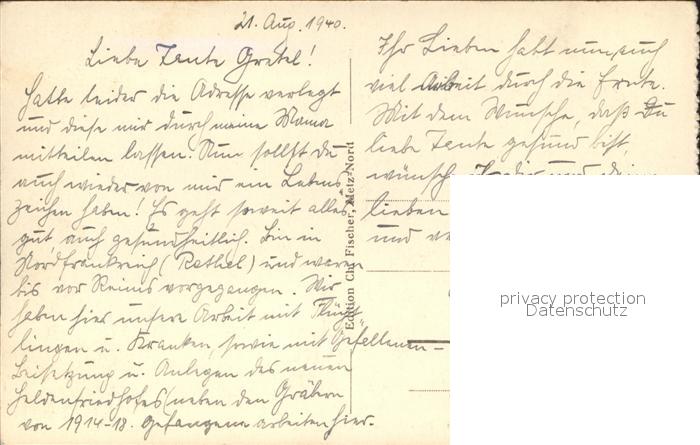 21. Aug. 1940.
Liebe Tante Gretel!
Hatte leider die Adresse verlegt
und diese mir durch meine Mama
mitteilen lassen. Nun sollst du
auch wieder von mir ein Lebens-
zeichen haben! Es geht soweit alles
gut, auch gesundheitlich. Bin in
Nordfrankreich (Rethel) und waren
bis vor Reims vorgegangen. Wir
haben hier unsere Arbeit mit Flücht-
lingen u. Kranken, sowie mit Gefallenen-
Beisetzung u. Anlegen des neuen
Heldenfriedhofes (neben den Gräbern
von 1914-18. Gefangene arbeiten hier.
Edition Ch. Fischer, Metz-Nord
Ihr Lieben habt nun auch
viel Arbeit durch die Ernte.
Mit dem Wunsche, daß Du
liebe Tante gesund bist,
wünsche
lieben
und
privacy protection
Datenschutz